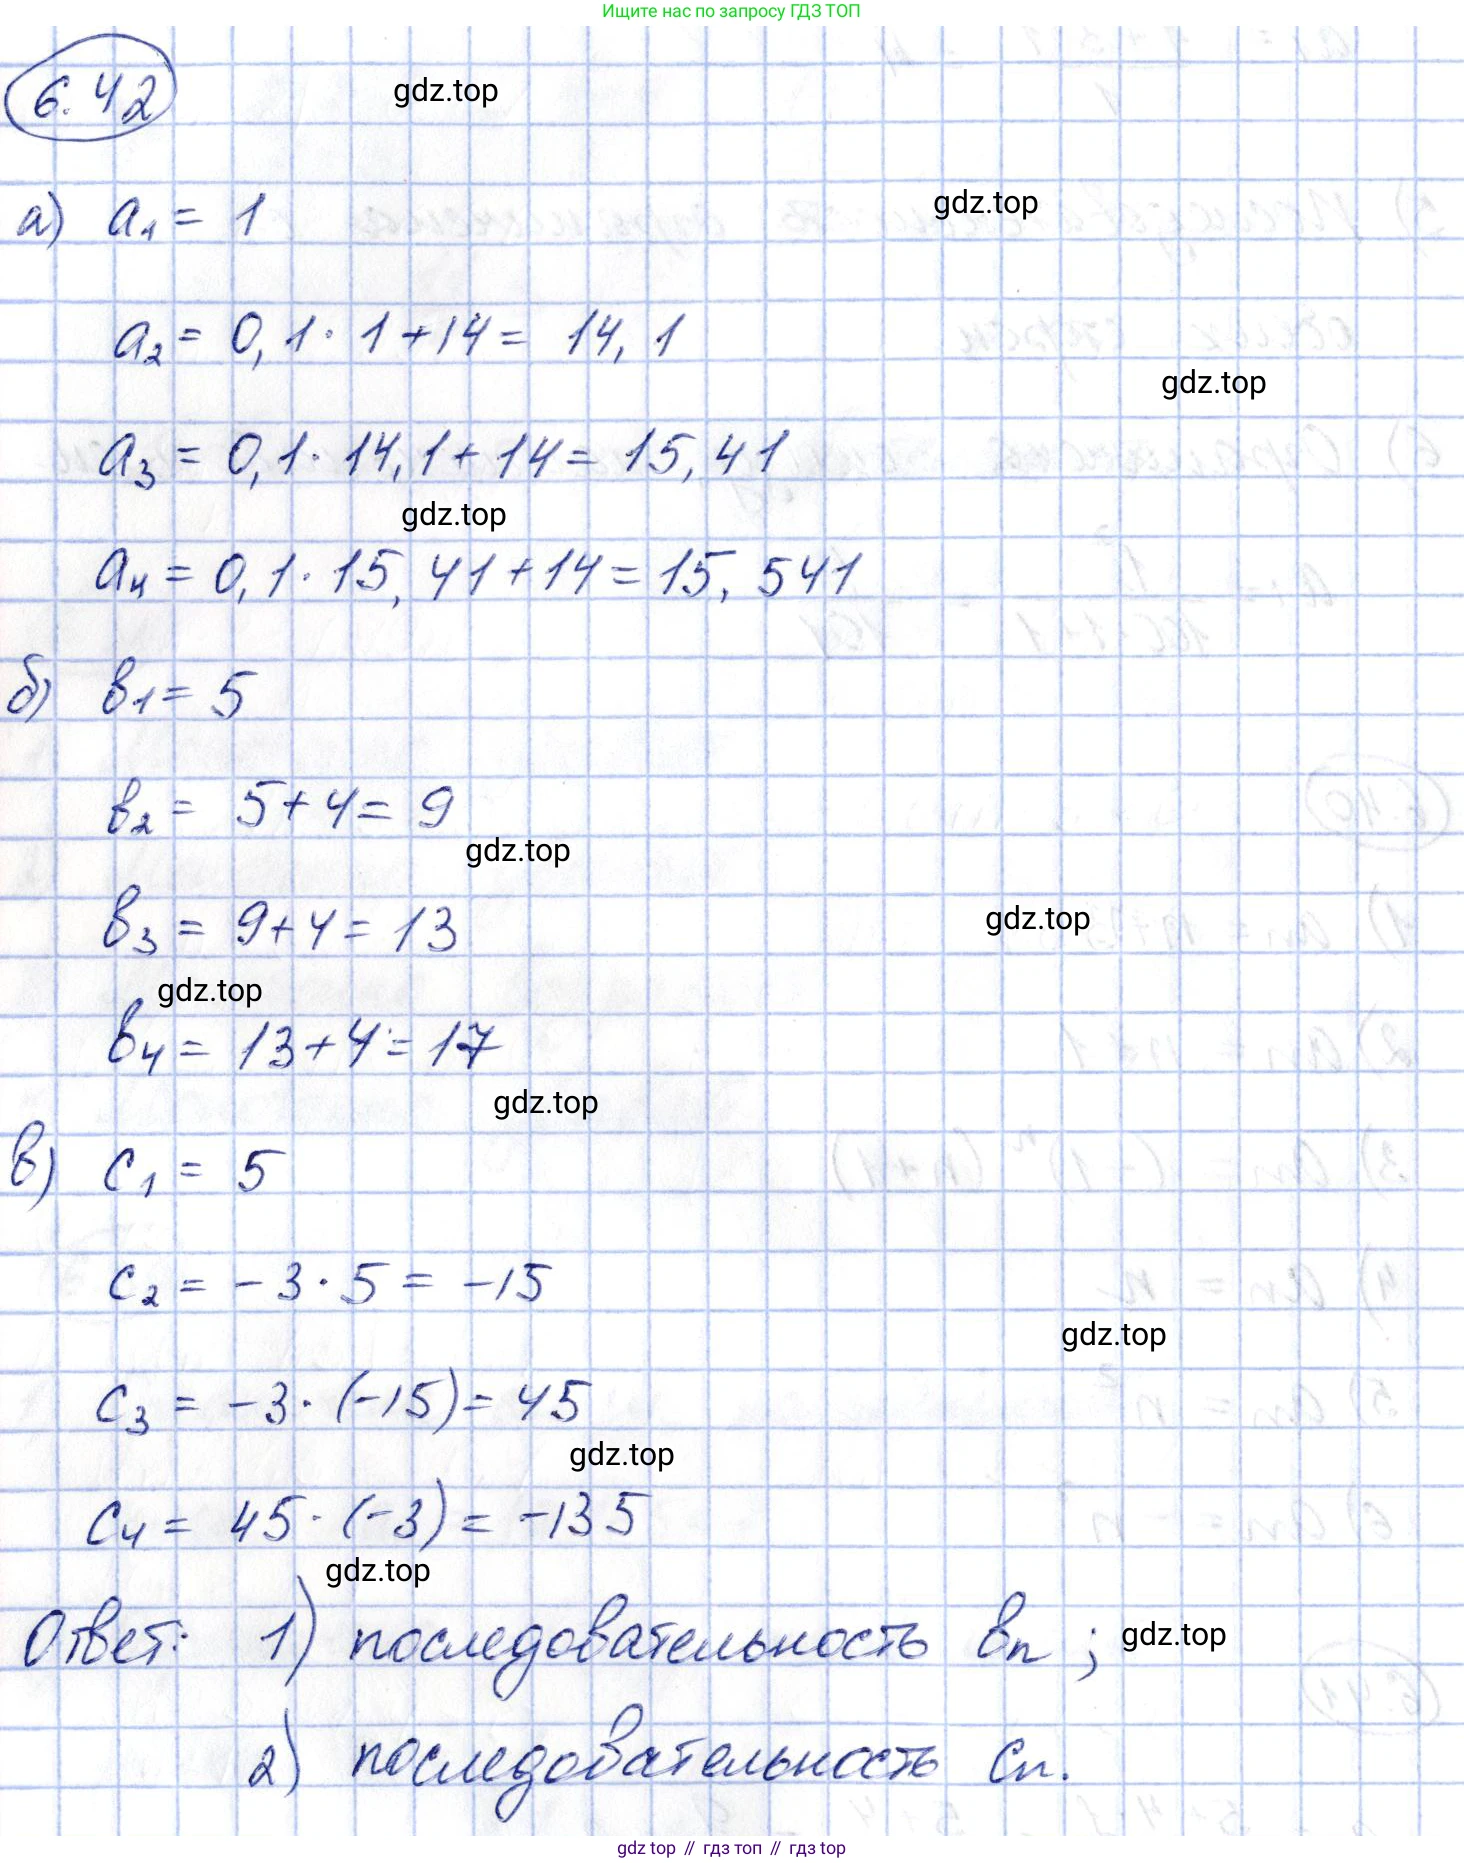 Ищите нас по запросу ГДЗ ТОП
6.42
gdz.top
а) a₁ = 1
gdz.top
a₂ = 0,1 · 1 + 14 = 14,1
gdz.top
a₃ = 0,1 · 14,1 + 14 = 15,41
gdz.top
a₄ = 0,1 · 15,41 + 14 = 15,541
б) b₁ = 5
b₂ = 5 + 4 = 9
gdz.top
b₃ = 9 + 4 = 13
gdz.top
gdz.top
b₄ = 13 + 4 = 17
gdz.top
в) c₁ = 5
c₂ = -3 · 5 = -15
gdz.top
c₃ = -3 · (-15) = 45
gdz.top
c₄ = 45 · (-3) = -135
gdz.top
Ответ: 1) последовательность bₙ;
gdz.top
2) последовательность cₙ.
gdz top // гдз топ // гдз top